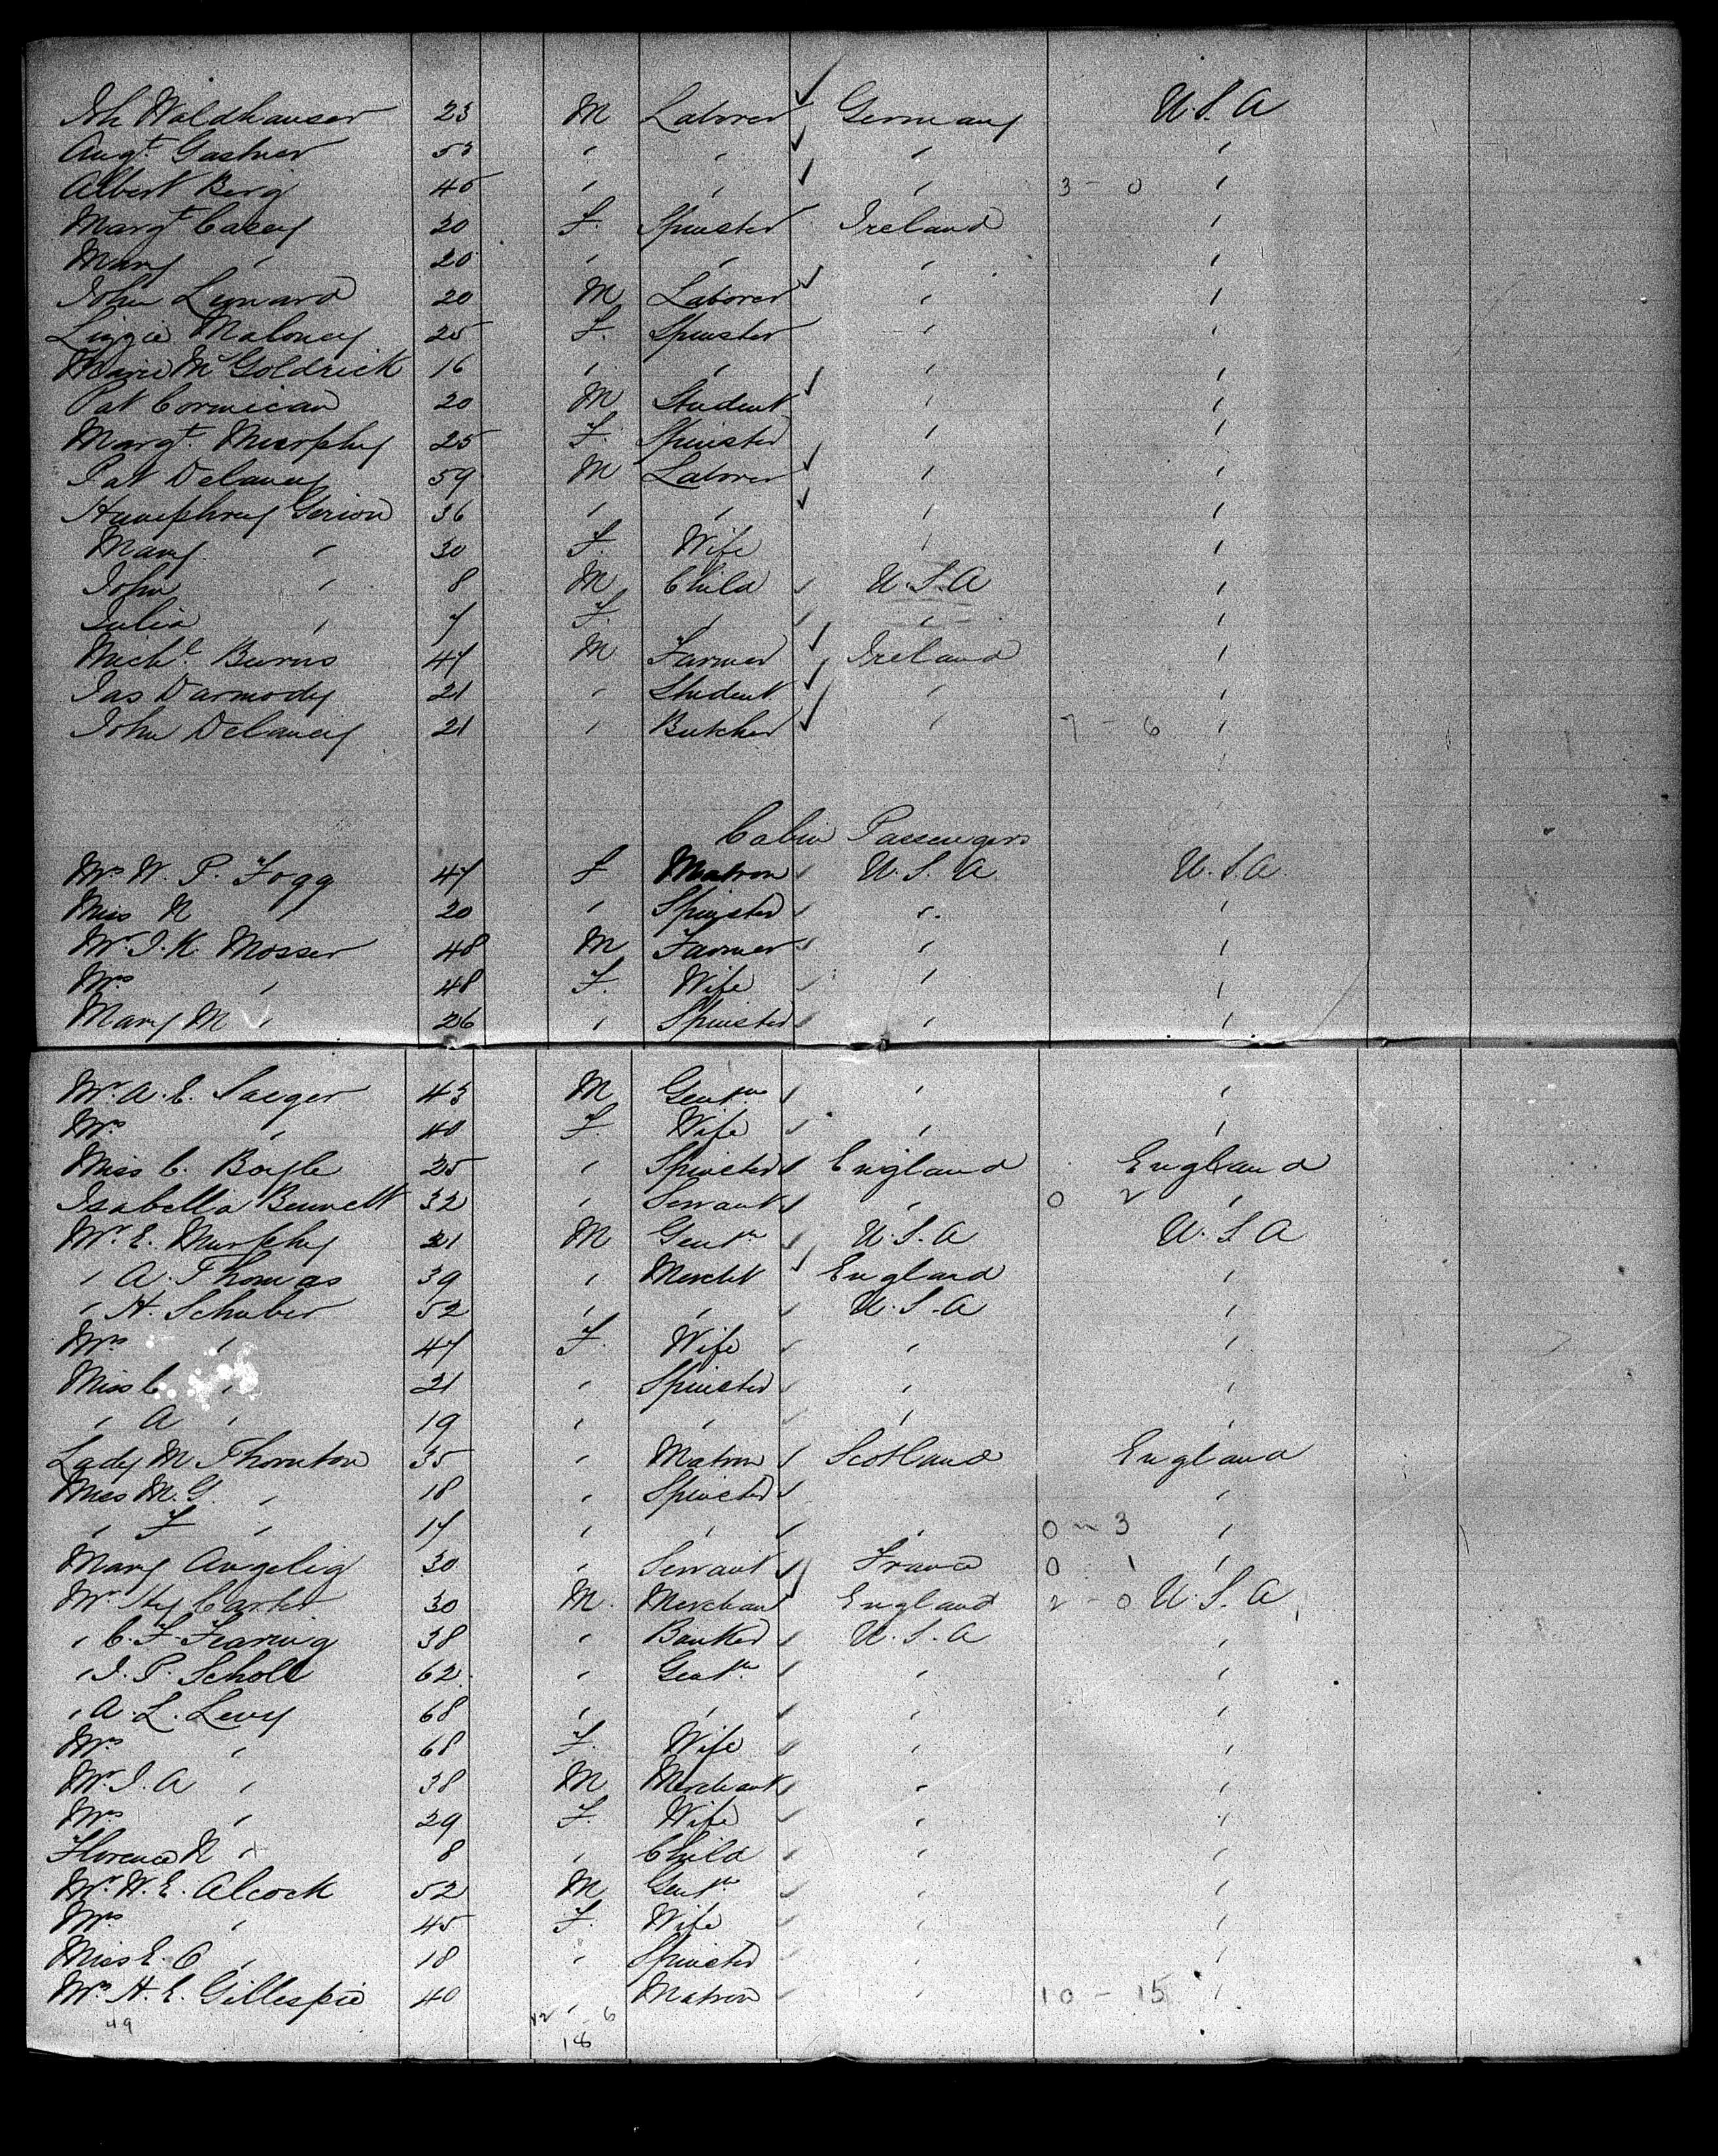 Joh Waldhauser 23 M Laborer ✓ Germany U.S.A
Augt. Gastner 53 " " ✓ " "
Albert Berg 45 " " ✓ " 3 - 0 "
Margt Casey 20 F. Spinster Ireland "
Mary " 20 " " " "
John Lennard 20 M Laborer ✓ " "
Lizzie Maloney 25 F. Spinster " "
Marie McGoldrick 16 " " " "
Pat Cormican 20 M Student ✓ " "
Margt. Murphy 25 F. Spinster " "
Pat Delaney 59 M Laborer ✓ " "
Humphrey Gerion 36 " " ✓ " "
Mary " 30 F. Wife " "
John " 8 M Child ✓ U.S.A "
Julia " 7 F. " ✓ " "
Michl. Burns 47 M Farmer ✓ Ireland "
Jas Darmody 21 " Student ✓ " "
John Delaney 21 " Butcher ✓ " 7 - 6 "
Cabin Passengers
Mrs W. P. Fogg 47 F Matron ✓ U.S.A U.S.A.
Miss N " 20 " Spinster ✓ " "
Mr. J. K. Mosser 48 M Farmer ✓ " "
Mrs " 48 F. Wife ✓ " "
Mary M " 26 " Spinster ✓ " "
Mr. A. E. Saeger 43 M Gentm ✓ " "
Mrs " 40 F. Wife ✓ " "
Miss C. Boyle 25 " Spinster ✓ England England
Isabella Bennett 32 " Servant ✓ " 0 2 "
Mr. E. Murphy 21 M Gentn ✓ U.S.A U.S.A
" A. Thomas 39 " Mercht ✓ England "
" H. Schuber 52 " " ✓ U.S.A "
Mrs " 47 F. Wife ✓ " "
Miss C " 21 " Spinster ✓ " "
" A " 19 " " ✓ " "
Lady M Thornton 35 " Matron ✓ Scotland England
Miss M. G. " 18 " Spinster ✓ "
" F " 17 " " ✓ " 0 - 3 "
Mary Angelig 30 " Servant ✓ France 0 1 "
Mr. Hy Carter 30 M. Merchant England 2 - 0 U.S.A
" C. F. Fearing 38 " Banker ✓ U.S.A "
" J. P. Scholl 62 " Gentn ✓ " "
" A. L. Levy 68 " " ✓ " "
Mrs " 68 F. Wife ✓ " "
Mr. J. A " 38 M Merchant ✓ " "
Mrs " 29 F. Wife ✓ " "
Florence N " 8 " Child ✓ " "
Mr. W. E. Alcock 52 M Gentn ✓ " "
Mrs " 45 F. Wife ✓ " "
Miss E. C " 18 " Spinster ✓ " "
Mrs H. E. Gillespie 40 " Matron " 10 - 15 "
49 12 - 6
18